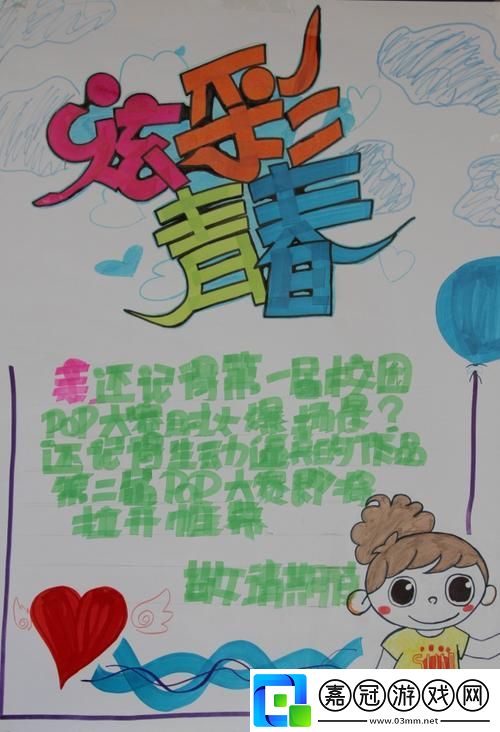 炫彩
青春
还记得第一届校园
POP大赛的火爆场景？
还记得生动逼真的作品
第二届POP大赛即将
拉开帷幕
敬请期待
SUN
嘉冠游戏网
www.03mm.net